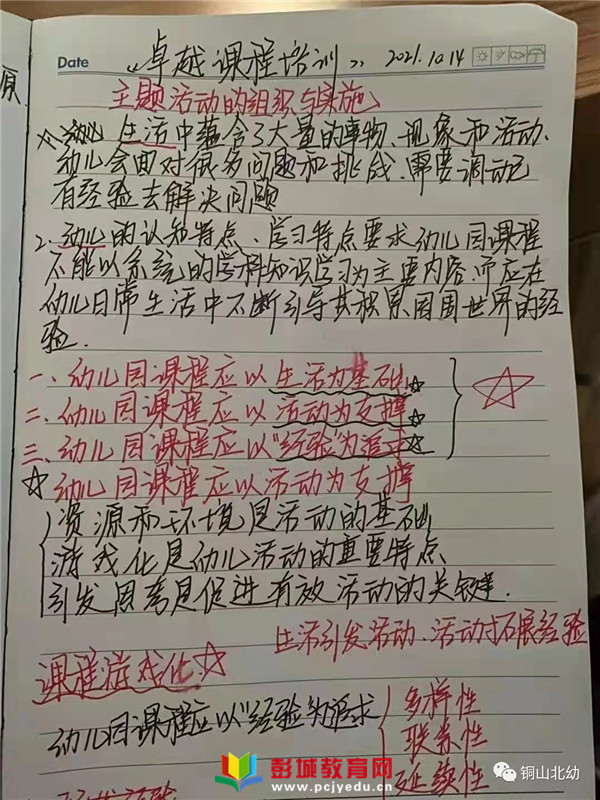 Date
《卓越课程培训》 2021.10.14
主题活动的组织与实施
生活中蕴含了大量的事物、现象和活动、
幼儿会面对很多问题和挑战、需要调动已
有经验去解决问题
2.幼儿的认知特点、学习特点要求幼儿园课程
不能以系统的学科知识学习为主要内容.而应在
幼儿日常生活中不断引导其积累周围世界的经
验.
一、幼儿园课程应以生活为基础
二、幼儿园课程应以活动为支撑
三、幼儿园课程应以"经验"为追求
☆幼儿园课程应以活动为支撑
资源和环境是活动的基础
游戏化是幼儿活动的重要特点
引发思考是促进有效活动的关键.
生活引发活动、活动拓展经验
课程游戏化☆
幼儿园课程应以"经验"为追求
多样性
联系性
延续性
彭城教育网
www.pcjyedu.cn
铜山北幼